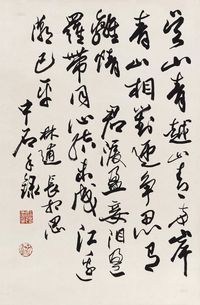 吴山青越山青两岸
青山相對迎争忍有
離情 君淚盈妾泪盈
羅帶同心结未成江邊
潮已平 林逋長相思
中石手錄